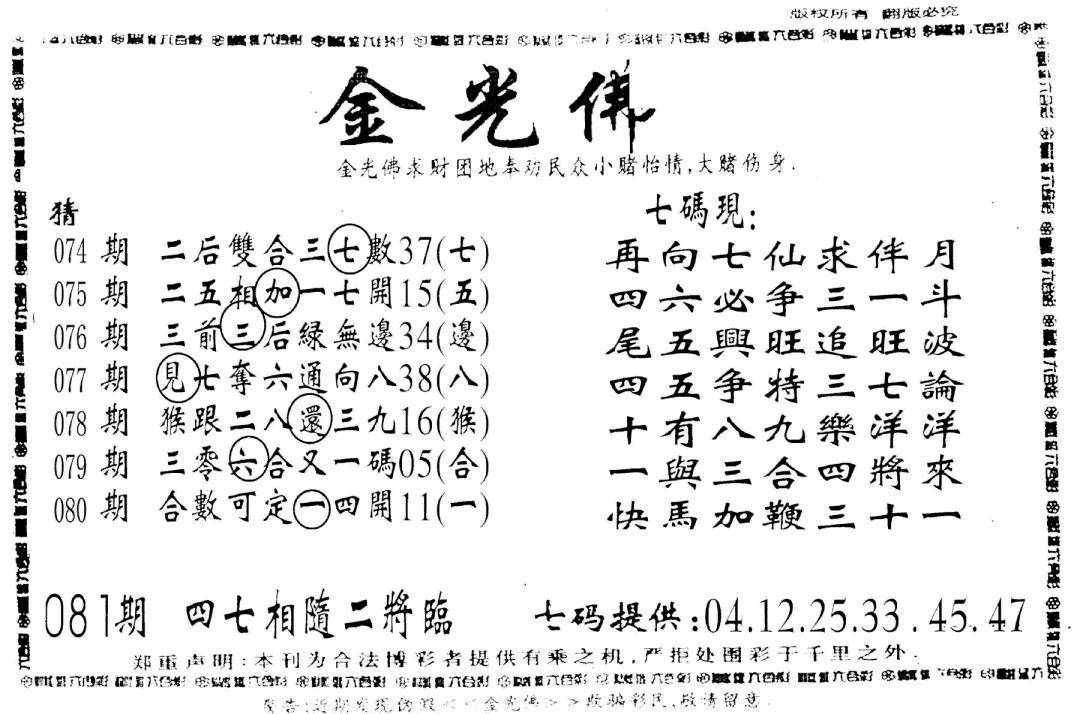 版权所有 翻版必究
金光佛
金光佛求财团地奉劝民众小赌怡情,大赌伤身.
猜
074期 二后雙合三七數37(七)
075期 二五相加一七開15(五)
076期 三前三后緑無邊34(邊)
077期 見七奪六通向八38(八)
078期 猴跟二八還三九16(猴)
079期 三零六合又一碼05(合)
080期 合數可定一四開11(一)
七碼現:
再向七仙求伴月
四六必争三一斗
尾五興旺追旺波
四五争特三七論
十有八九樂洋洋
一與三合四將來
快馬加鞭三十一
081期 四七相隨二將臨 七码提供:04.12.25.33.45.47
郑重声明:本刊为合法博彩者提供有乘之机,严拒处围彩于千里之外.
警告:近期发现伪假<<金光佛>>欺骗彩民,敬请留意.